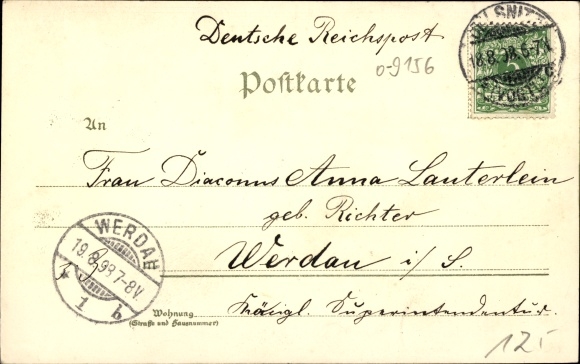 Deutsche Reichspost
0-9156
Postkarte
OELSNITZ
18.8.98.6-7N
(VOGTL)
An
Frau Diaconus Anna Lauterlein
geb. Richter
Werdau i/S.
WERDAU
19.8.98 7-8V
1 b
Wohnung
(Straße und Hausnummer)
Königl. Superintendentur.
12.-